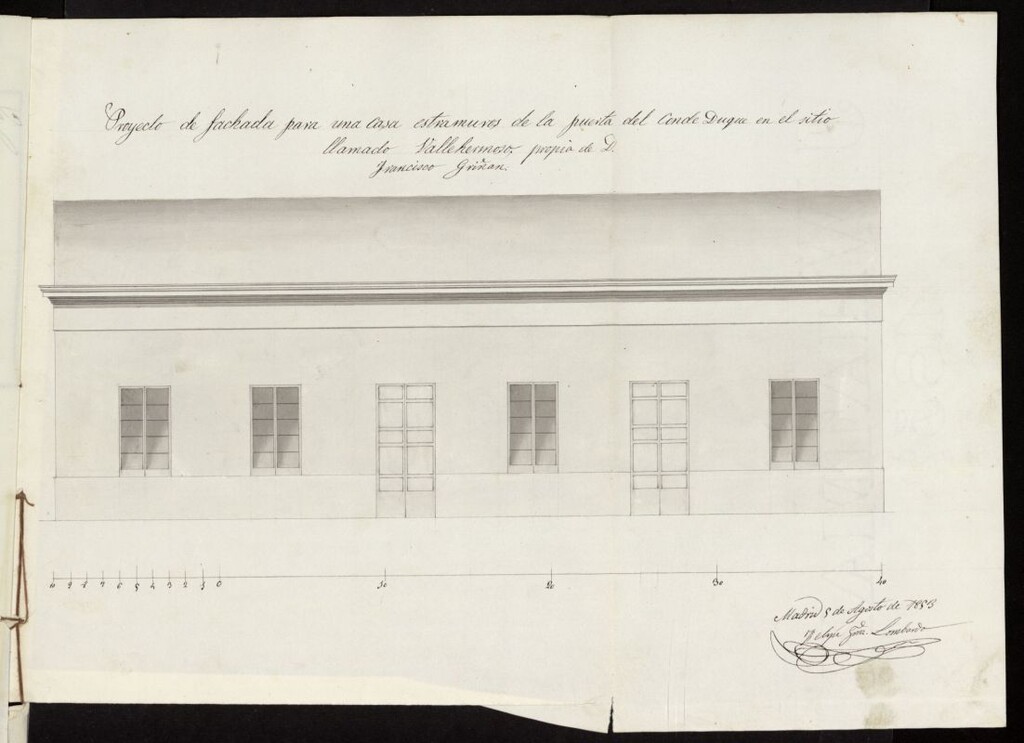 Proyecto de fachada para una casa estramuros de la puerta del Conde Duque en el sitio
llamado Vallehermoso, propia de D.
Francisco Griñan.
10 9 8 7 6 5 4 3 2 1 0 10 20 30 40
Madrid 5 de Agosto de 1855
Lombardo